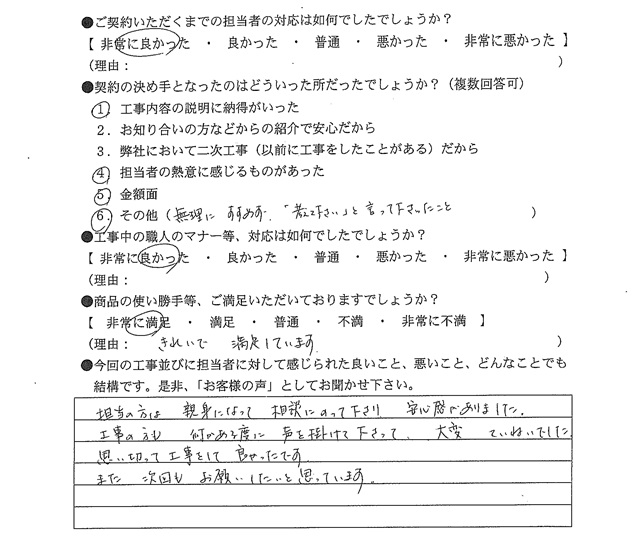 ●ご契約いただくまでの担当者の対応は如何でしたでしょうか？
【 非常に良かった ・ 良かった ・ 普通 ・ 悪かった ・ 非常に悪かった 】
（理由： ）
●契約の決め手となったのはどういった所だったでしょうか？（複数回答可）
1．工事内容の説明に納得がいった
2．お知り合いの方などからの紹介で安心だから
3．弊社において二次工事（以前に工事をしたことがある）だから
4．担当者の熱意に感じるものがあった
5．金額面
6．その他（無理に すすめず、「考えて下さい」と言って下さったこと ）
●工事中の職人のマナー等、対応は如何でしたでしょうか？
【 非常に良かった ・ 良かった ・ 普通 ・ 悪かった ・ 非常に悪かった 】
（理由： ）
●商品の使い勝手等、ご満足いただいておりますでしょうか？
【 非常に満足 ・ 満足 ・ 普通 ・ 不満 ・ 非常に不満 】
（理由： きれいで 満足しています ）
●今回の工事並びに担当者に対して感じられた良いこと、悪いこと、どんなことでも
結構です。是非、「お客様の声」としてお聞かせ下さい。
担当の方は 親身になって 相談にのって下さり 安心感がありました。
工事の方も 何かある度に 声を掛けて下さって、 大変 ていねいでした。
思い切って工事をして 良かったです。
また 次回も お願いしたいと思っています。